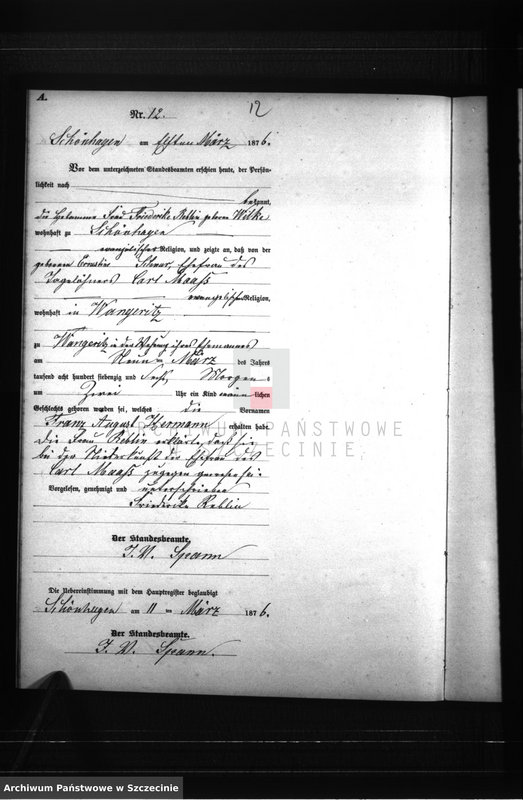 A.
Nr. 12.
12
Schönhagen am elften März 1876.
Vor dem unterzeichneten Standesbeamten erschien heute, der Persön-
lichkeit nach
bekannt,
die Hebamme Frau Friederike Reblin geborene Wibke
wohnhaft zu Schönhagen
evangelischer Religion, und zeigte an, daß von der
geborenen Ernestine Ehefrau des
Tagelöhners Carl Maaß
evangelischer Religion,
wohnhaft in Wangeritz
zu Wangeritz in der Wohnung ihres Ehemannes
am Neunten März des Jahres
tausend acht hundert siebenzig und sechs, Morgens
um zwei Uhr ein Kind männlichen
Geschlechts geboren worden sei, welches die Vornamen
Franz August Hermann erhalten habe.
Die Frau Reblin erklärte, daß sie
bei der Niederkunft der Ehefrau des
Carl Maaß zugegen gewesen sei.
Vorgelesen, genehmigt und unterschrieben
Friedericke Reblin
Der Standesbeamte,
J. V. Spann
Die Uebereinstimmung mit dem Hauptregister beglaubigt
Schönhagen am 11 ten März 1876.
Der Standesbeamte.
J. V. Spann.
ARCHIWUM PAŃSTWOWE
W SZCZECINIE
Archiwum Państwowe w Szczecinie